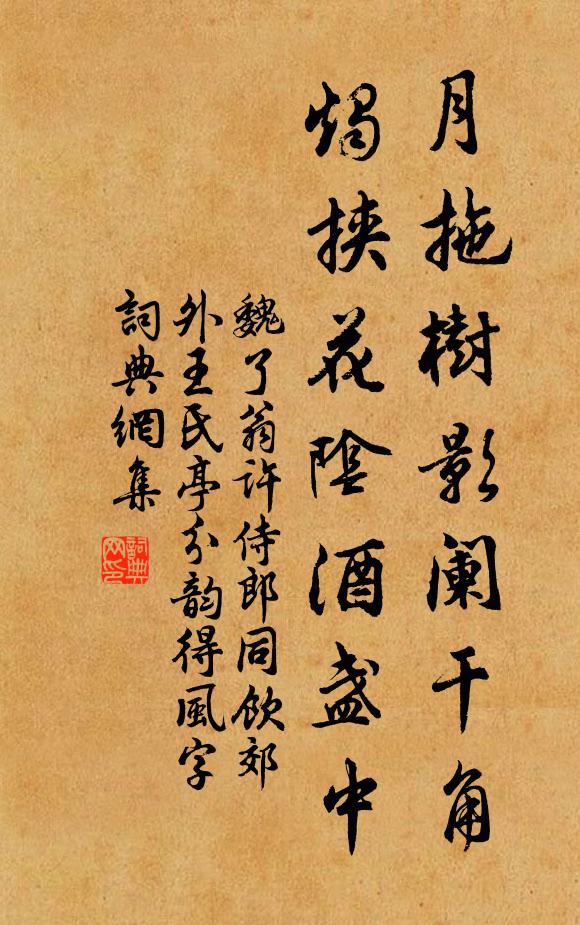 月拖樹影阑干角
燭挾花陰酒盏中
魏了翁许侍郎同飲郊
外王氏亭分韵得風字
詞典網集
詞典
网印